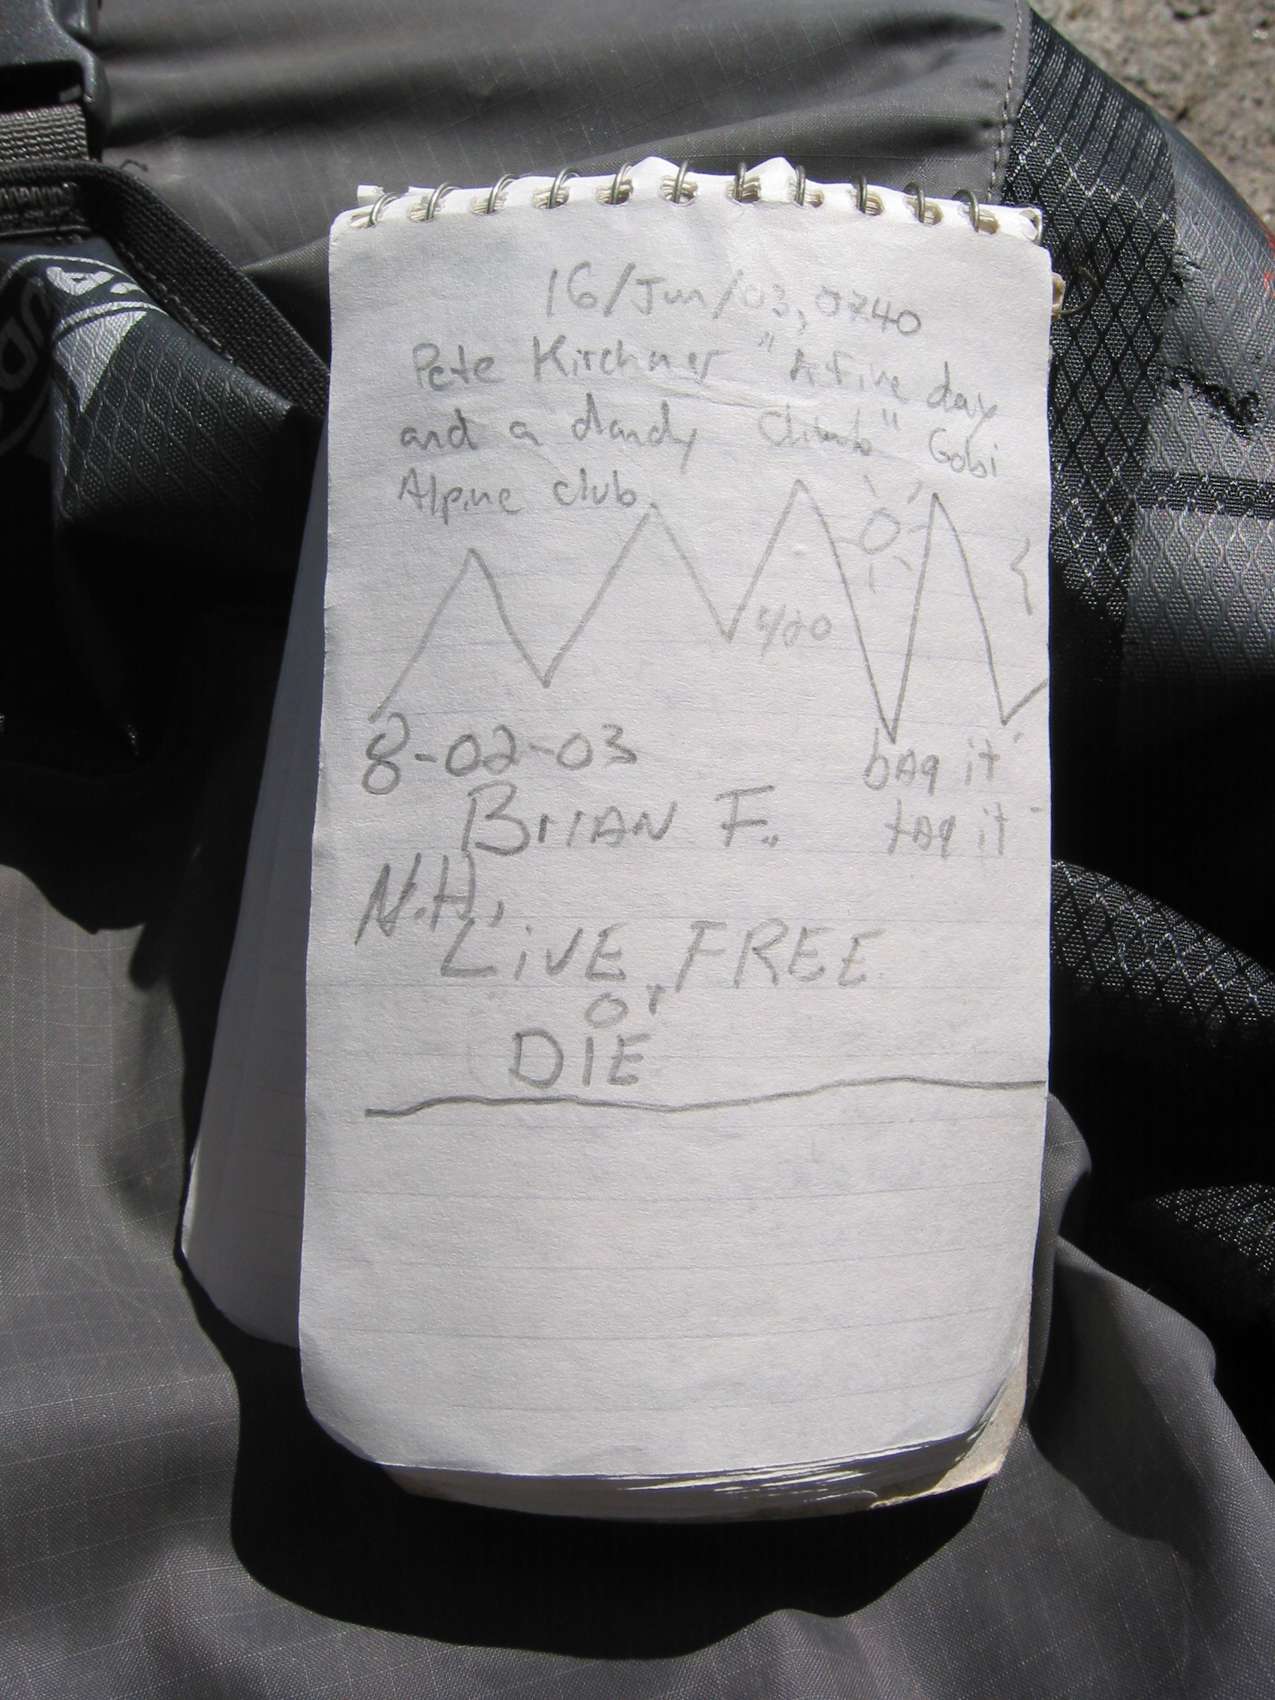 16/Jun/03, 0740
Pete Kirchner "A fine day
and a dandy climb" Gobi
Alpine club.
4/20
8-02-03
bAg it
tAg it
BriAN F.
N.H.,
LiVE FREE
or
DIE